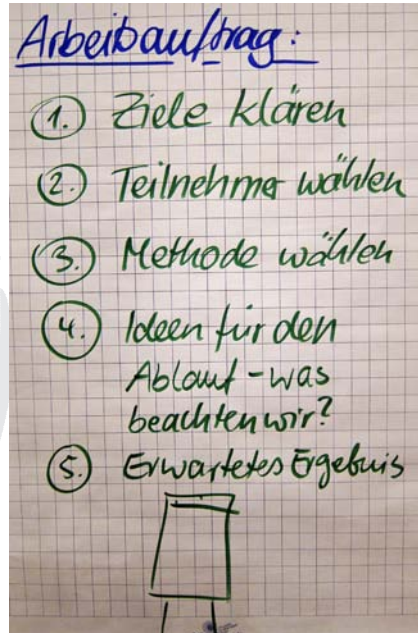 Arbeitsauftrag:
1. Ziele klären
2. Teilnehmer wählen
3. Methode wählen
4. Ideen für den
Ablauf - was
beachten wir?
5. Erwartetes Ergebnis